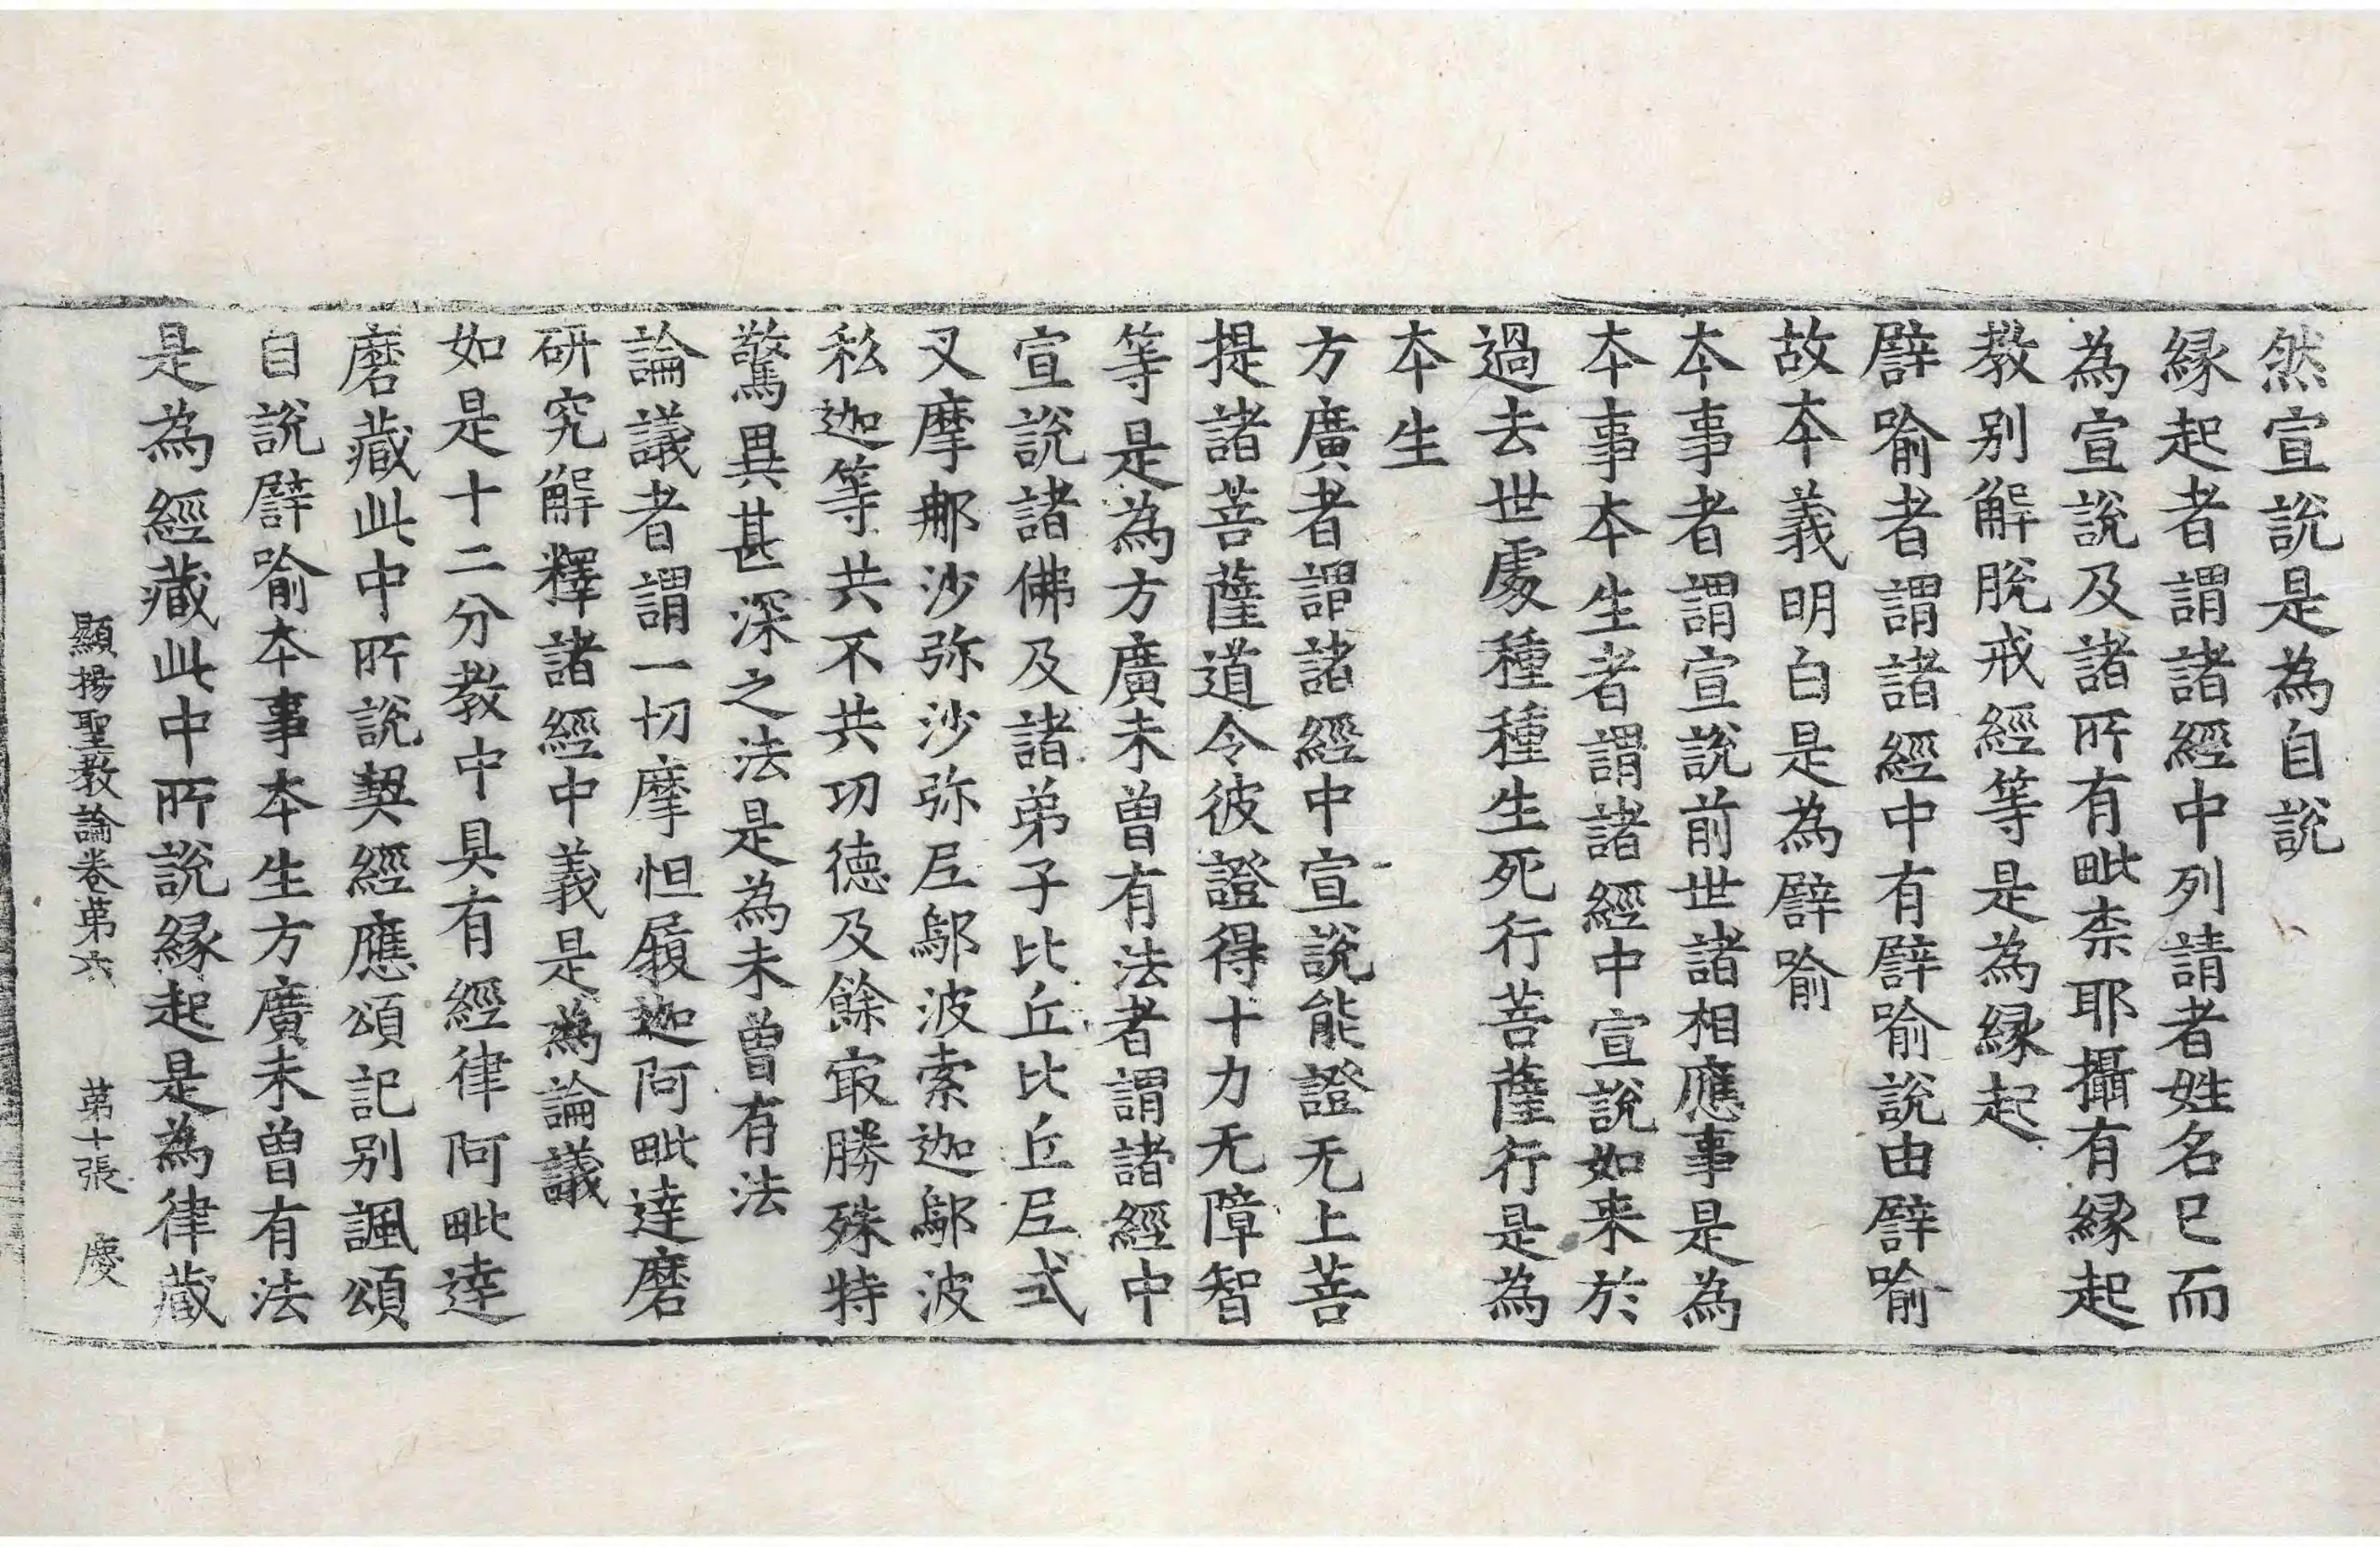 然宣說是為自說
緣起者謂諸經中列請者姓名已而
為宣說及諸所有毗柰耶攝有緣起
教別解脫戒經等是為緣起
譬喻者謂諸經中有譬喻說由譬喻
故本義明白是為譬喻
本事者謂宣說前世諸相應事是為
本事本生者謂諸經中宣說如来於
過去世處種種生死行菩薩行是為
本生
方廣者謂諸經中宣說能證无上菩
提諸菩薩道令彼證得十力无障智
等是為方廣未曾有法者謂諸經中
宣說諸佛及諸弟子比丘比丘尼式
叉摩那沙弥沙弥尼鄔波索迦鄔波
私迦等共不共功德及餘㝡勝殊特
驚異甚深之法是為未曾有法
論議者謂一切摩怛履迦阿毗達磨
研究解釋諸經中義是為論議
如是十二分教中具有經律阿毗達
磨藏此中所說契經應頌記別諷頌
自說譬喻本事本生方廣未曾有法
是為經藏此中所說緣起是為律藏
顯揚聖教論卷第六 第十張 慶